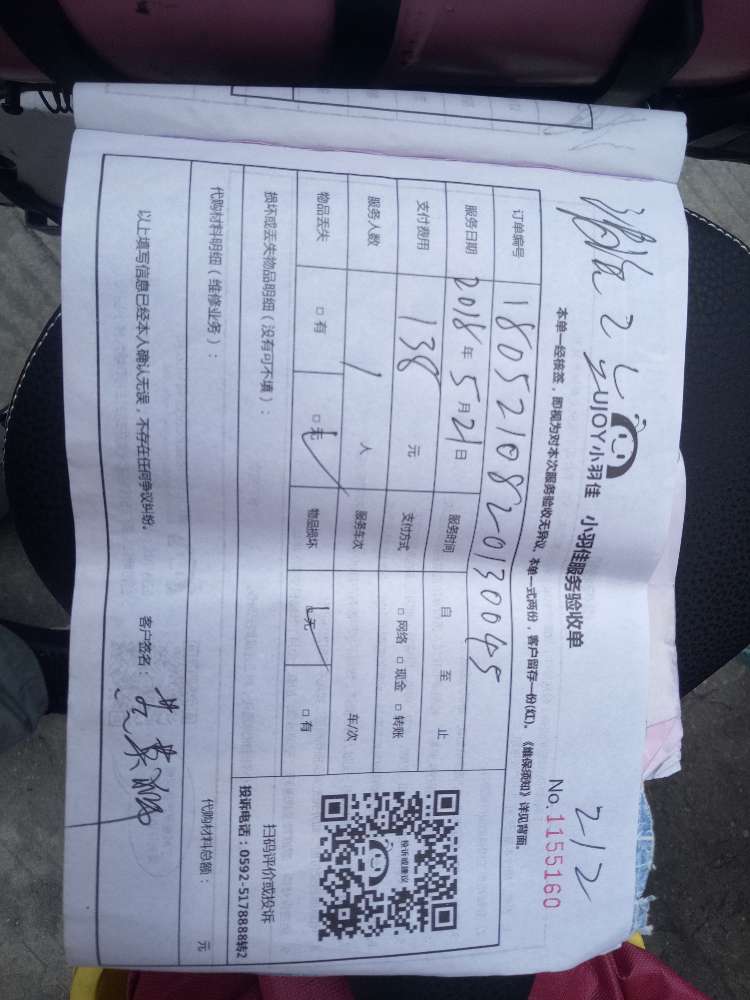 212
UJOY小羽佳 小羽佳服务验收单
No.1155160
本单一经核签，即视为对本次服务验收无异议，本单一式两份，客户留存一份(红)。《维保须知》详见背面。
订单编号 1805210820130045
服务日期 2018年5月21日 服务时间 自 至 止
支付费用 138元 支付方式 □网络 □现金 □转账
服务人数 1人 服务车次 车/次
物品丢失 □有 □无 物品损坏 □无 □有
投诉或建议
扫码评价或投诉
投诉电话：0592-5178888转2
损坏或丢失物品明细（没有可不填）：
代购材料明细（维修业务）： 代购材料总额： 元
以上填写信息已经本人确认无误，不存在任何争议纠纷。 客户签名：